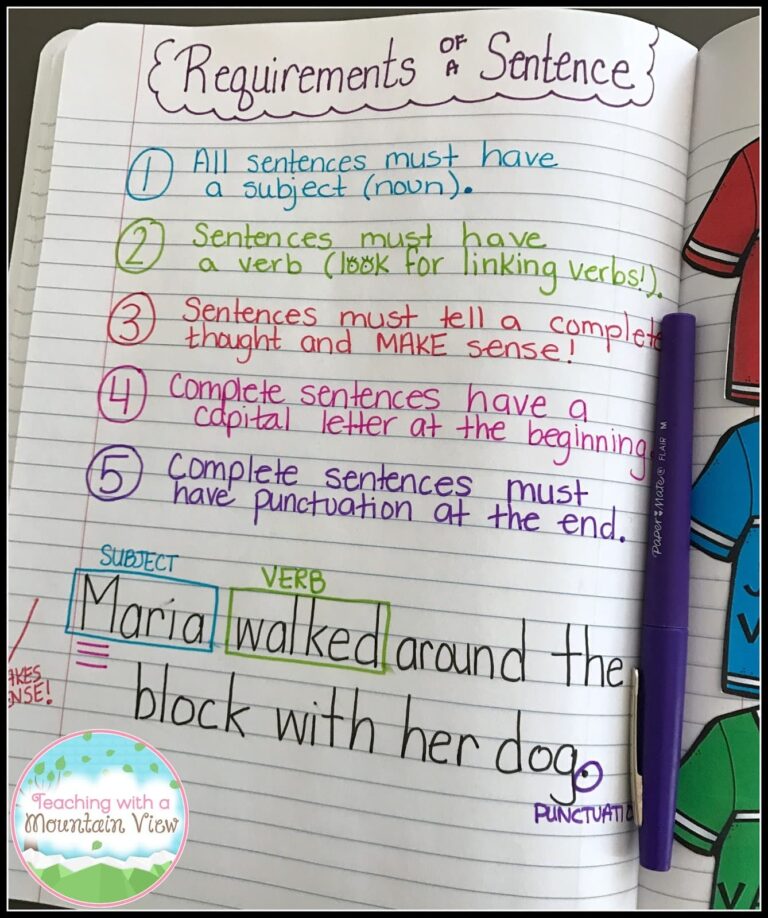 Requirements OF A Sentence
1 All sentences must have
a subject (noun).
2 Sentences must have
a verb (look for linking verbs!).
3 Sentences must tell a complete
thought and MAKE sense!
4 Complete sentences have a
capital letter at the beginning
5 Complete sentences must
have punctuation at the end.
SUBJECT
VERB
Maria walked around the
block with her dog.
PUNCTUATIO
AKES
NSE!
Paper Mate® FLAIR M
Teaching with a
Mountain View